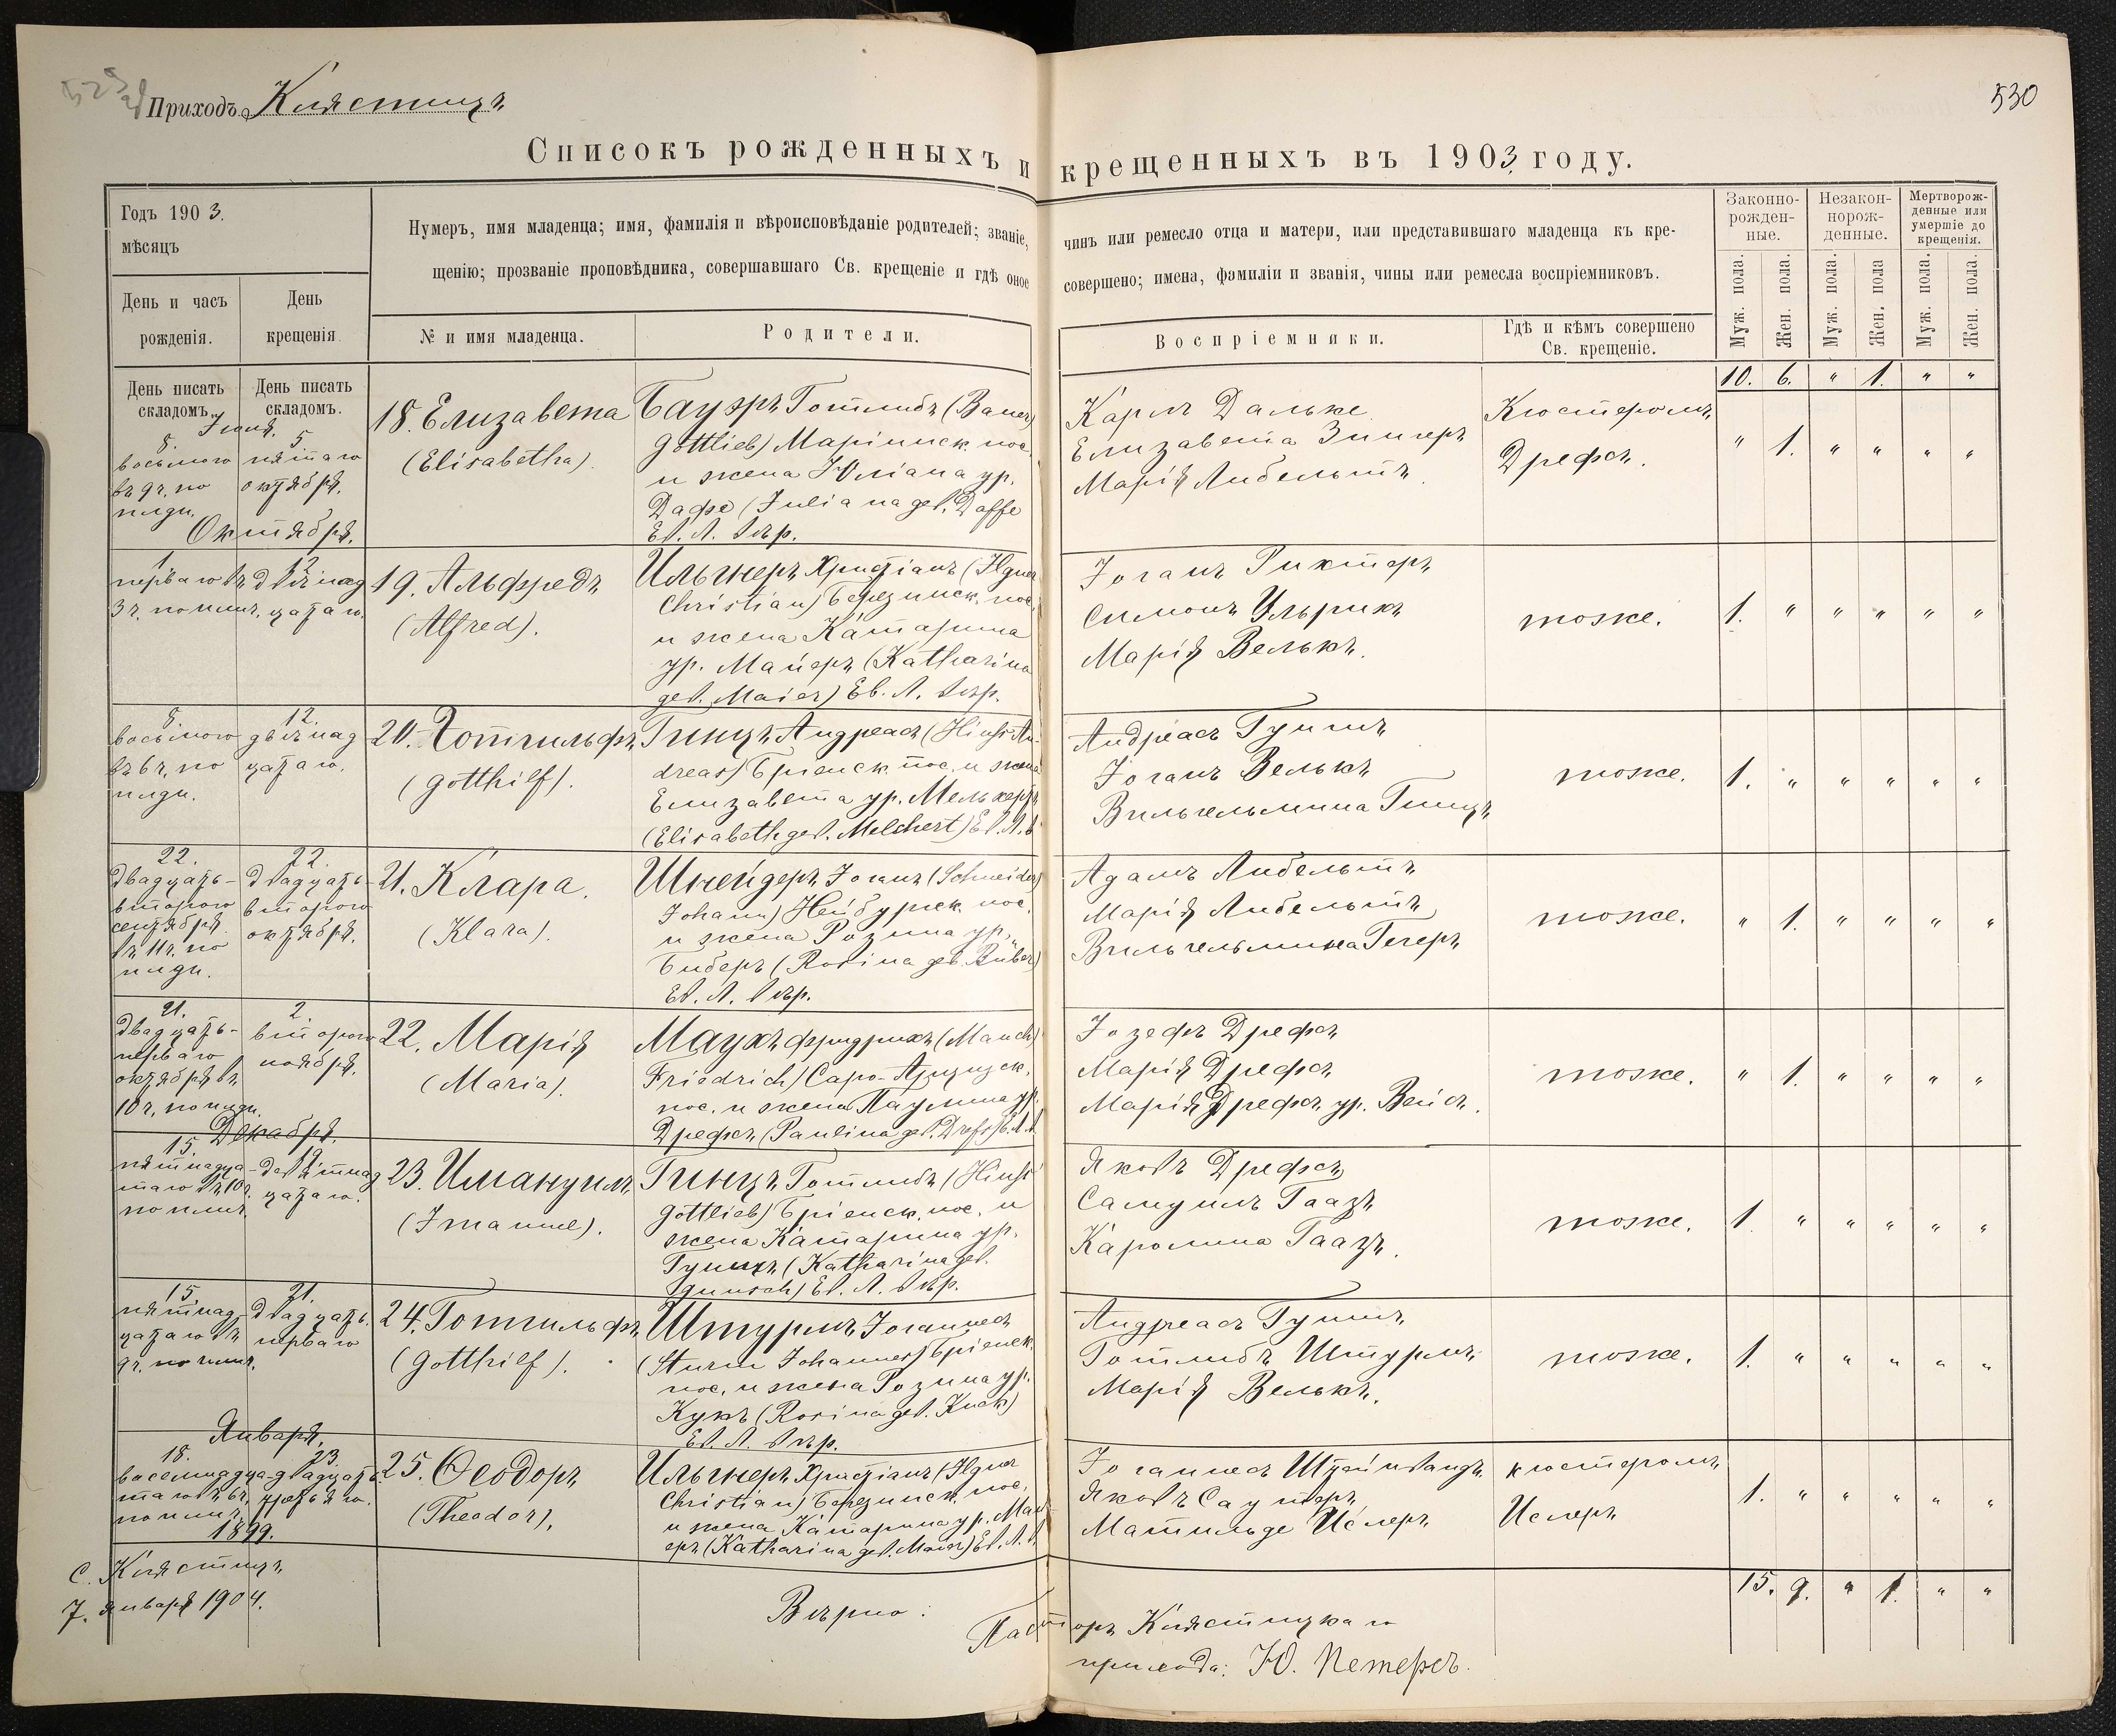 Приходъ Клястицъ
530
Списокъ рожденныхъ и крещенныхъ въ 1903 году.
Годъ 1903.
мѣсяцъ
День и часъ
рожденія.
День
крещенія
Нумеръ, имя младенца; имя, фамилія и вѣроисповѣданіе родителей; званіе, чинъ или ремесло отца и матери, или представившаго младенца къ кре-
щенію; прозваніе проповѣдника, совершавшаго Св. крещеніе и гдѣ оное совершено; имена, фамиліи и званія, чины или ремесла воспріемниковъ.
№ и имя младенца.
Родители.
Воспріемники.
Гдѣ и кѣмъ совершено
Св. крещеніе.
Законно-
рожден-
ные.
Незакон-
норож-
денные.
Мертворож-
денные или
умершіе до
крещенія.
Муж. пола.
Жен. пола.
Муж. пола.
Жен. пола
Муж. пола.
Жен. пола.
День писать
складомъ.
День писать
складомъ.
10. 6. " 1. " "
8.
восьмого
въ 9 ч. по
плдн.
5
пятаго
октября.
18. Елизавета
(Elisabetha).
Бауэръ Готлибъ (Bauer
Gottlieb) Маріинск. пос.
и жена Юліана ур.
Дафе (Juliana geb. Daffe
Ев. Л. вѣр.
Карлъ Дальке
Елизавета Зингеръ
Марія Либельтъ.
Кюстеромъ
Дрефсъ.
" 1. " " " "
Октября.
1.
перваго въ
3 ч. по плнч.
12
двѣнад
цатаго.
19. Альфредъ
(Alfred).
Ильгнеръ Христіанъ (Ilgner
Christian) Березинск. пос.
и жена Катарина
ур. Майеръ (Katharina
geb. Maier) Ев. Л. вѣр.
Іоганъ Рихтеръ
Симонъ Ульрихъ
Марія Велькъ.
тоже.
1. " " " " "
8.
восьмого
въ 6 ч. по
плдн.
12.
двѣнад
цатаго.
20. Готгильфъ
(Gotthilf).
Гинцъ Андреасъ (Hinz An-
dreas) Бріенск. пос. и жена
Елизавета ур. Мелькертъ
(Elisabeth geb. Melchert) Ев. Л. в
Андреасъ Гуншъ
Іоганъ Велькъ
Вильгельмина Гинцъ
тоже.
1. " " " " "
22.
двадцать-
второго
сентября
въ 11 ч. по
плдн.
22.
двадцать-
второго
октября.
21. Клара.
(Klara).
Шнейдеръ Іоганъ (Schneider
Johann) Нейбургск. пос.
и жена Розина ур.
Биберъ (Rosina geb. Büber)
Ев. Л. вѣр.
Адамъ Либельтъ
Марія Либельтъ
Вильгельмина Гегеръ
тоже.
" 1. " " " "
21.
двадцать-
перваго
октября въ
10 ч. по плдн.
2.
второго
ноября.
22. Марія
(Maria).
Маухъ Фридрихъ (Mauch
Friedrich) Саро-Арцизск.
пос. и жена Паулина ур.
Дрефсъ (Paulina geb. Drefs) Е. Л. в
Іозефъ Дрефсъ
Марія Дрефсъ
Марія Дрефсъ ур. Вейсъ.
тоже.
" 1. " " " "
Декабря.
15.
пятнадца-
таго въ 10 ч.
по плнч.
19
девятнад
цатаго.
23. Имануилъ
(Imanuel).
Гинцъ Готлибъ (Hinz
Gottlieb) Бріенск. пос. и
жена Катарина ур.
Гуншъ (Katharina geb.
Gunsch) Ев. Л. вѣр.
Яковъ Дрефсъ
Самуилъ Гаазъ
Каролина Гаазъ.
тоже.
1. " " " " "
15.
пятнад-
цатаго въ
9 ч. по плнч.
21.
двадцать.
перваго
24. Готгильфъ
(Gotthilf).
Штурмъ Іоганнесъ
(Sturm Johannes) Бріенск.
пос. и жена Розина ур.
Кукъ (Rosina geb. Kuck)
Ев. Л. вѣр.
Андреасъ Гуншъ
Готлибъ Штурмъ
Марія Велькъ.
тоже.
1. " " " " "
Января.
18.
восемнадца-
таго въ 6 ч.
по плнч.
1899.
23.
двадцать
третьяго.
25. Ѳеодоръ
(Theodor).
Ильгнеръ Христіанъ (Ilgner
Christian) Березинск. пос.
и жена Катарина ур. Май
еръ (Katharina geb. Maier) Ев. Л. в
Іоганнесъ Штейнвандъ
Яковъ Саутеръ
Матильде Ислеръ
кюстеромъ
Ислеръ
1. " " " " "
15. 9. " 1. " "
с. Клястицъ
7. января 1904.
Вѣрно:
Пасторъ Клястицкаго
прихода: Ю. Петерсъ.